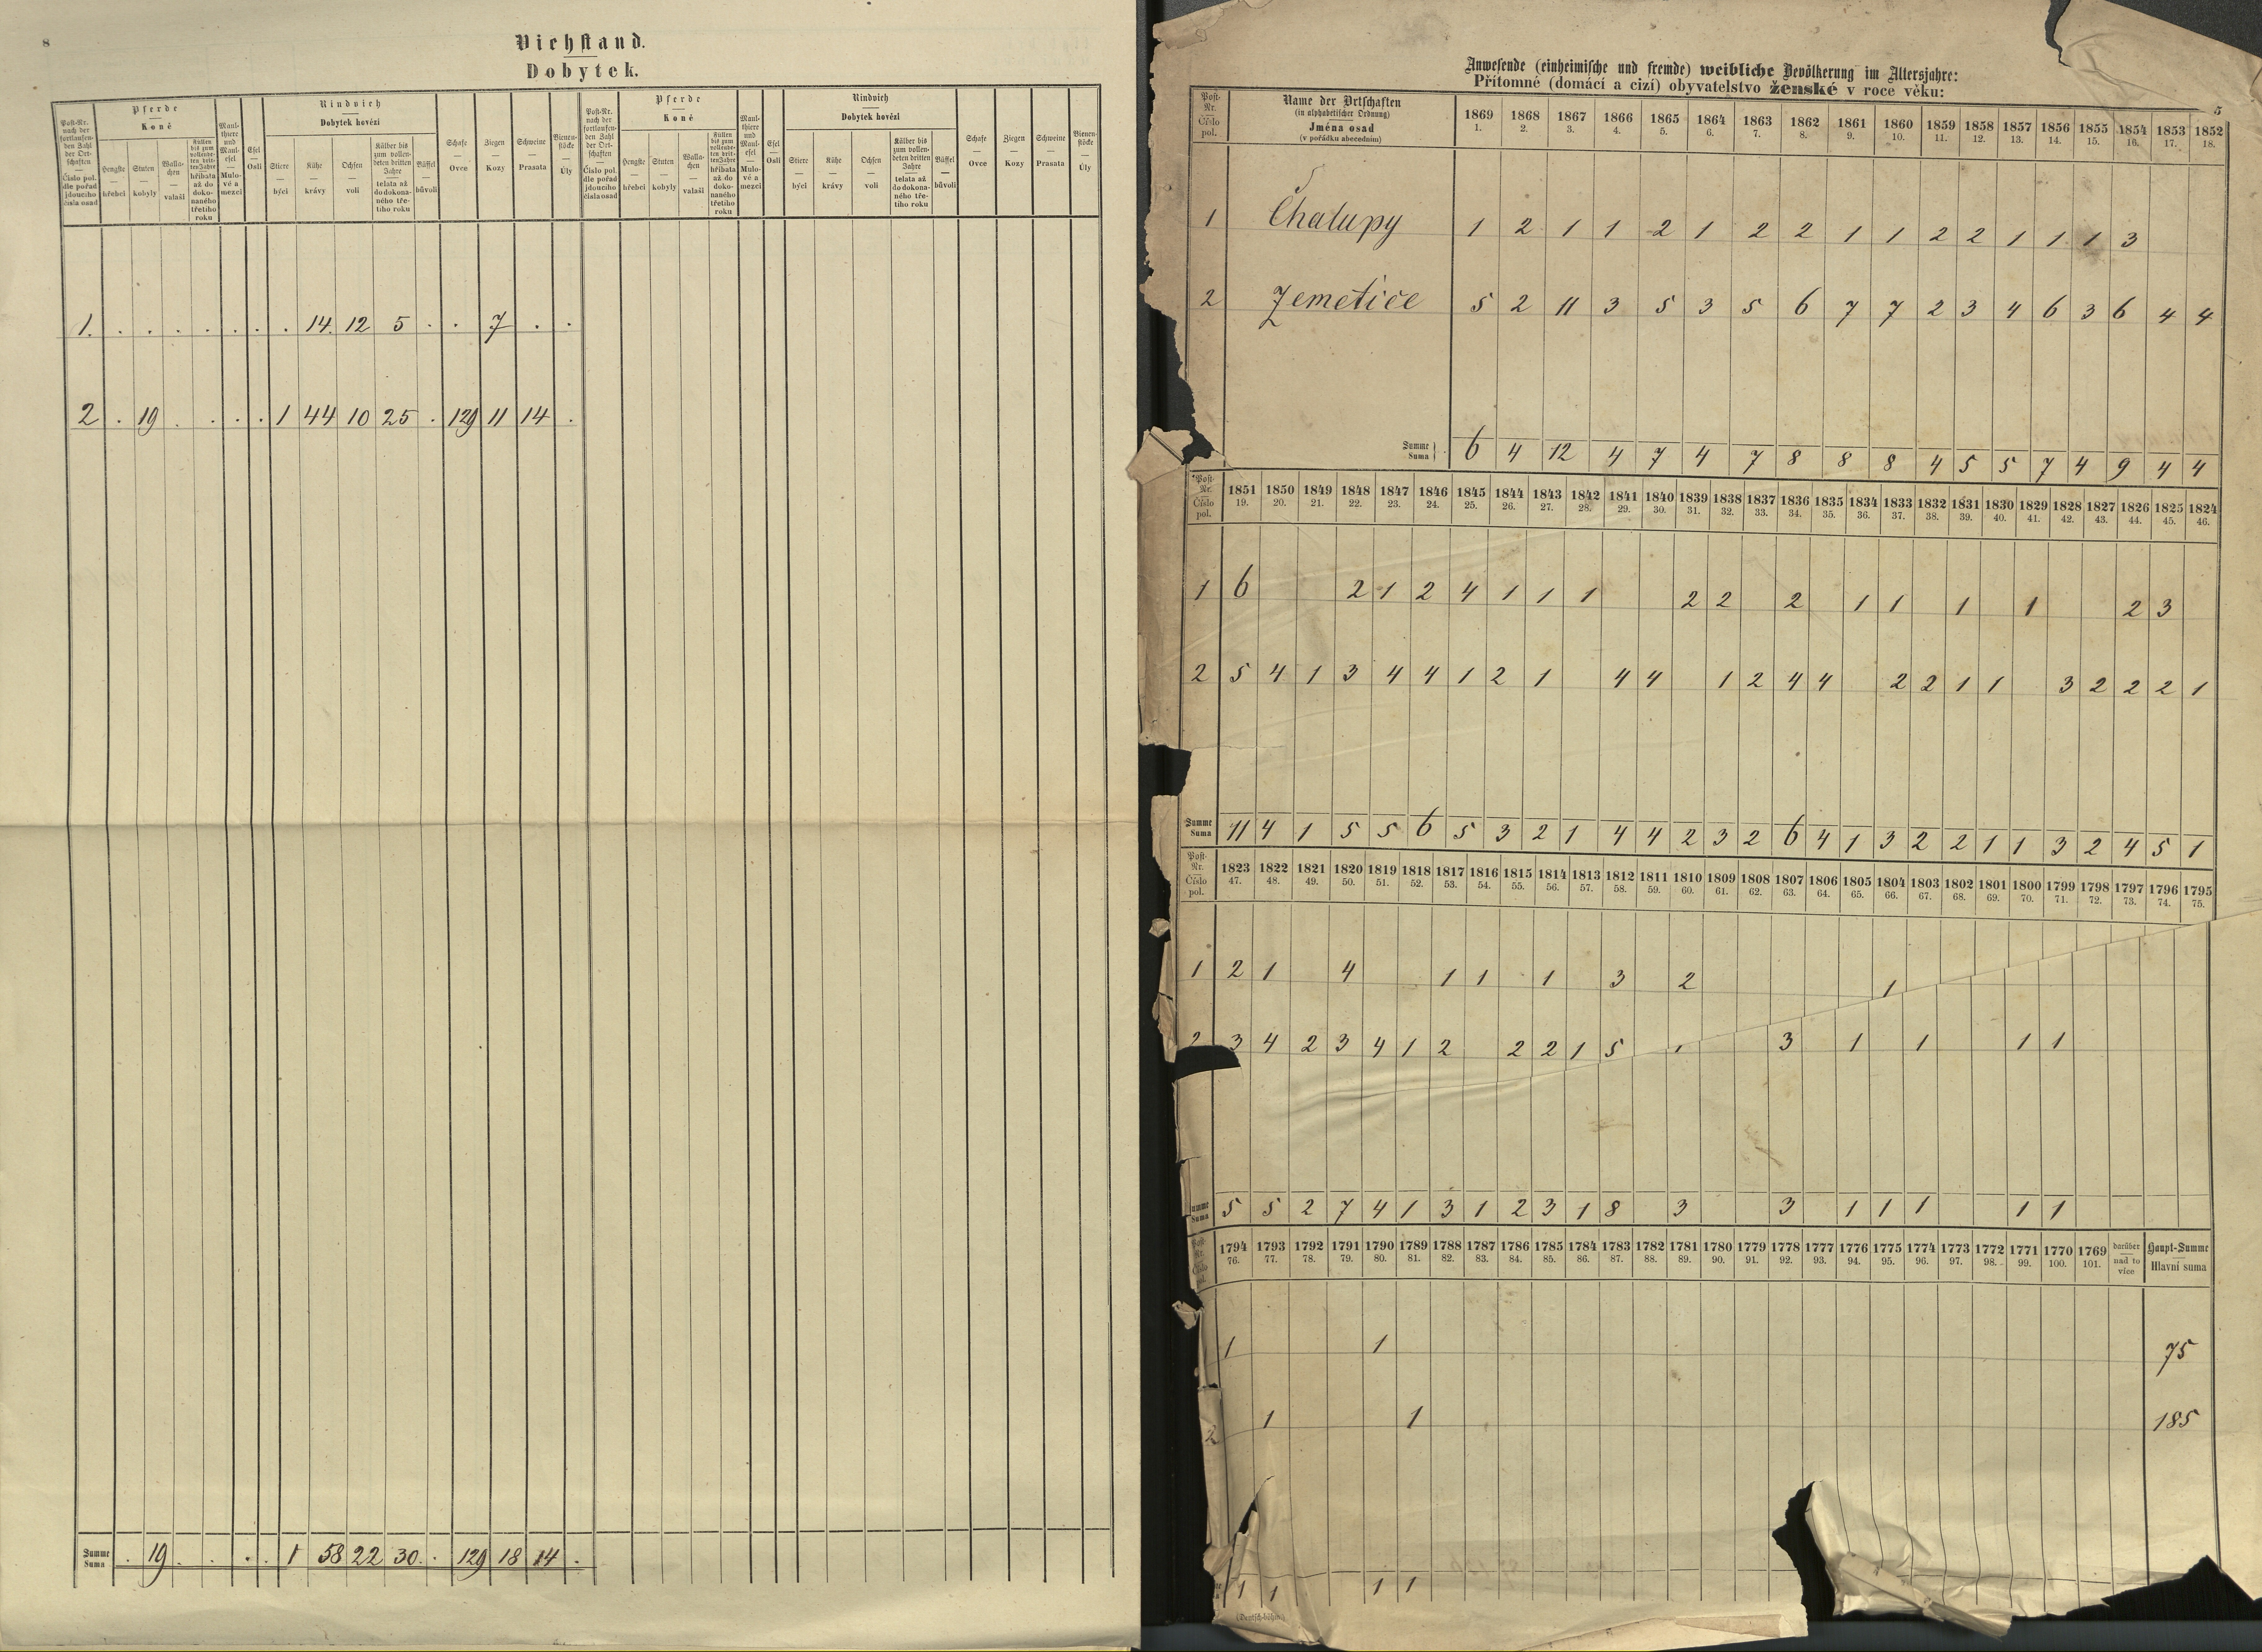 8
Viehstand.
Dobytek.
Post-Nr. nach der fortlaufenden Zahl der Ortschaften — Číslo pol. dle pořad jdoucího čísla osad
Pferde — Koně
Hengste — hřebci
Stuten — kobyly
Wallachen — valaši
Füllen bis zum vollendeten dritten Jahre hříbata až do dokonaného třetího roku
Maulthiere und Maulesel — Mulové a mezci
Esel — Osli
Rindvieh — Dobytek hovězí
Stiere — býci
Kühe — krávy
Ochsen — voli
Kälber bis zum vollendeten dritten Jahre — telata až do dokonaného třetího roku
Büffel — bůvoli
Schafe — Ovce
Ziegen — Kozy
Schweine — Prasata
Bienenstöcke — Úly
Post-Nr. nach der fortlaufenden Zahl der Ortschaften — Číslo pol. dle pořad jdoucího čísla osad
Pferde — Koně
Hengste — hřebci
Stuten — kobyly
Wallachen — valaši
Füllen bis zum vollendeten dritten Jahre hříbata až do dokonaného třetího roku
Maulthiere und Maulesel — Mulové a mezci
Esel — Osli
Rindvieh — Dobytek hovězí
Stiere — býci
Kühe — krávy
Ochsen — voli
Kälber bis zum vollendeten dritten Jahre — telata až do dokonaného třetího roku
Büffel — bůvoli
Schafe — Ovce
Ziegen — Kozy
Schweine — Prasata
Bienenstöcke — Úly
1. . . . . . . . 14. 12 5 . . 7 . .
2 . 19 . . . . 1 44 10 25 . 129 11 14 .
Summe Suma . 19 . . . . 1 58 22 30 . 129 18 14 .
Anwesende (einheimische und fremde) weibliche Bevölkerung im Altersjahre:
Přítomné (domácí a cizí) obyvatelstvo ženské v roce věku:
5
Post-Nr. Číslo pol.
Name der Ortschaften (in alphabetischer Ordnung) Jména osad (v pořádku abecedním)
1869 1868 1867 1866 1865 1864 1863 1862 1861 1860 1859 1858 1857 1856 1855 1854 1853 1852
1. 2. 3. 4. 5. 6. 7. 8. 9. 10. 11. 12. 13. 14. 15. 16. 17. 18.
1 Chalupy 1 2 1 1 2 1 2 2 1 1 2 2 1 1 1 3
2 Zemetiče 5 2 11 3 5 3 5 6 7 7 2 3 4 6 3 6 4 4
Summe Suma 6 4 12 4 7 4 7 8 8 8 4 5 5 7 4 9 4 4
Post-Nr. Číslo pol.
1851 1850 1849 1848 1847 1846 1845 1844 1843 1842 1841 1840 1839 1838 1837 1836 1835 1834 1833 1832 1831 1830 1829 1828 1827 1826 1825 1824
19. 20. 21. 22. 23. 24. 25. 26. 27. 28. 29. 30. 31. 32. 33. 34. 35. 36. 37. 38. 39. 40. 41. 42. 43. 44. 45. 46.
1 6 2 1 2 4 1 1 1 2 2 2 1 1 1 1 2 3
2 5 4 1 3 4 4 1 2 1 4 4 1 2 4 4 2 2 1 1 3 2 2 2 1
Summe Suma 11 4 1 5 5 6 5 3 2 1 4 4 2 3 2 6 4 1 3 2 2 1 1 3 2 4 5 1
Post-Nr. Číslo pol.
1823 1822 1821 1820 1819 1818 1817 1816 1815 1814 1813 1812 1811 1810 1809 1808 1807 1806 1805 1804 1803 1802 1801 1800 1799 1798 1797 1796 1795
47. 48. 49. 50. 51. 52. 53. 54. 55. 56. 57. 58. 59. 60. 61. 62. 63. 64. 65. 66. 67. 68. 69. 70. 71. 72. 73. 74. 75.
1 2 1 4 1 1 1 3 2 1
2 3 4 2 3 4 1 2 2 2 1 5 1 3 1 1 1 1
Summe Suma 5 5 2 7 4 1 3 1 2 3 1 8 3 3 1 1 1 1 1
Post-Nr. Číslo pol.
1794 1793 1792 1791 1790 1789 1788 1787 1786 1785 1784 1783 1782 1781 1780 1779 1778 1777 1776 1775 1774 1773 1772 1771 1770 1769 darüber nad to více Haupt-Summe Hlavní suma
76. 77. 78. 79. 80. 81. 82. 83. 84. 85. 86. 87. 88. 89. 90. 91. 92. 93. 94. 95. 96. 97. 98. 99. 100. 101.
1 1 75
2 1 1 185
1 1 1 1
(Deutsch-böhm.)